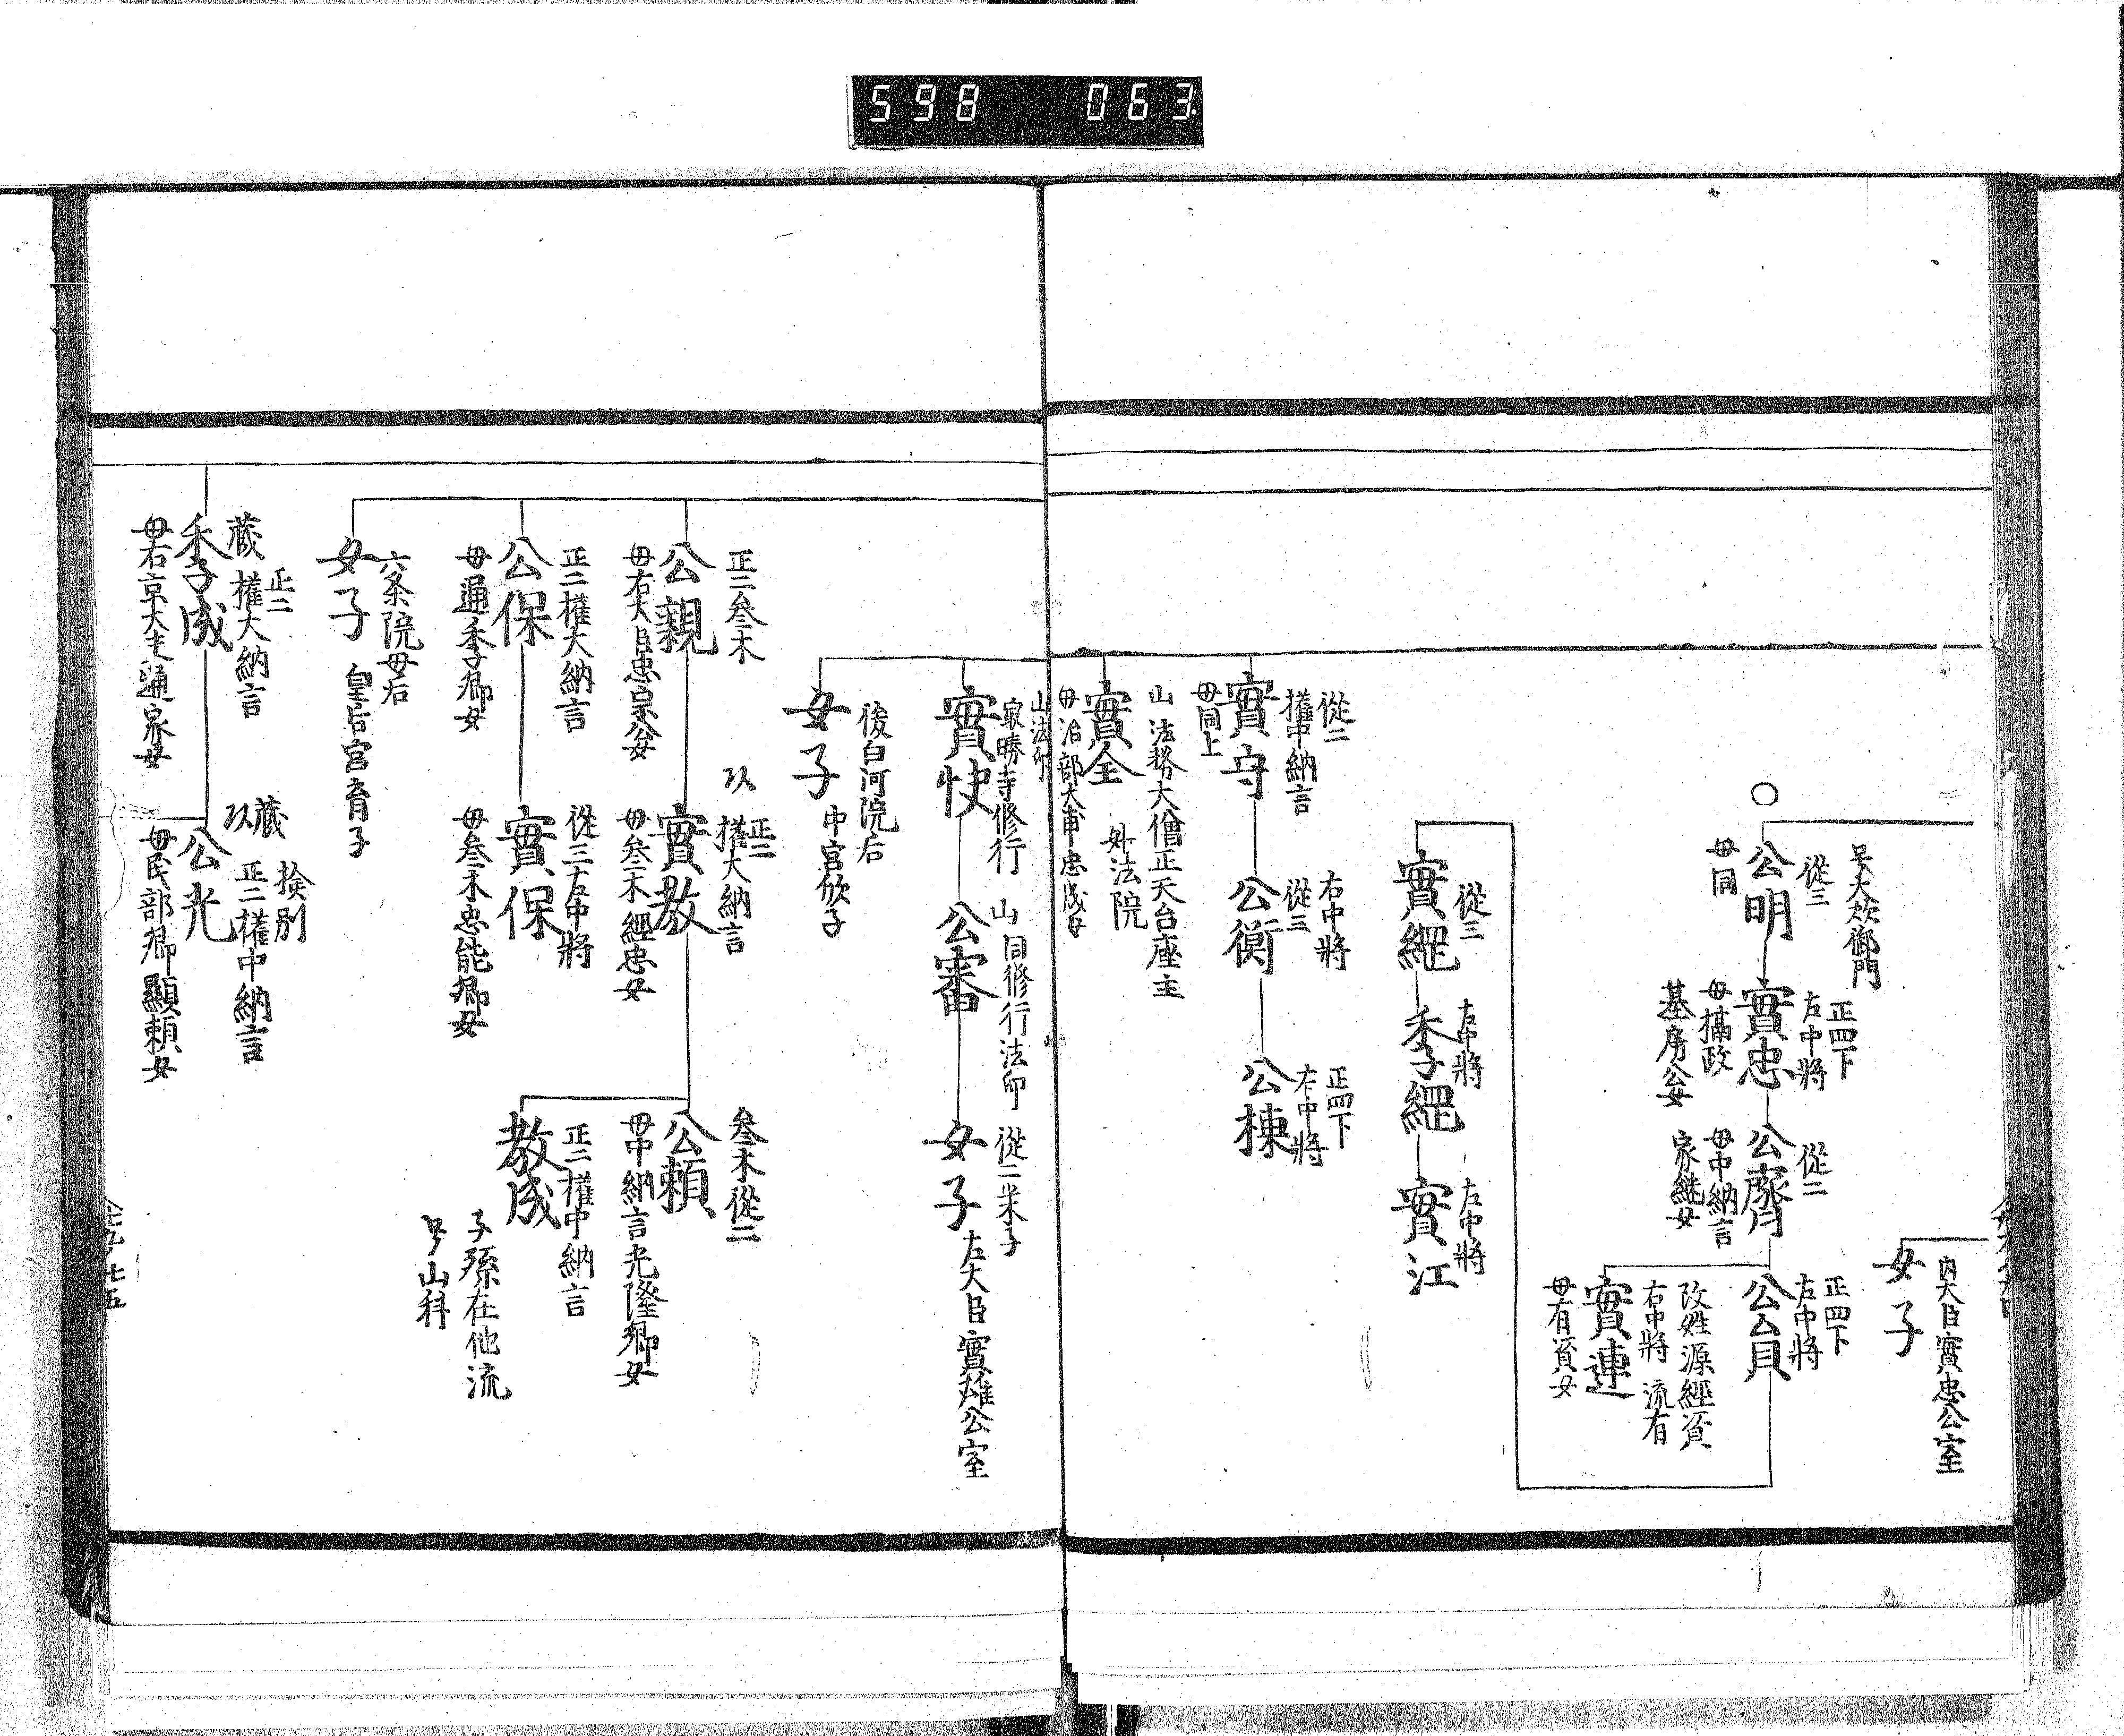 598 063
内大臣實忠公室
女子
号大炊御門
從三
公明
母同
正四下
左中將
實忠
母攝政
基房公女
從二
公齊
母中納言
家継女
正四下
左中將
公貝
改姓源經資
右中將 流有
實連
母有資女
從三
實綱
左中將
季綱
左中將
實江
從二
權中納言
實守
母同上
右中將
從三
公衡
正四下
右中將
公棟
山 法務大僧正天台座主
妙法院
實全
母治部大輔忠成女
山法印
寂勝寺修行
實快
山 同修行法印
公審
從二米子
女子
左大臣實雄公室
後白河院后
女子
中宮忻子
正二叄木
公親
母右大臣忠宗公女
以
正二
權大納言
實教
母叄木經忠女
叄木從二
公頼
母中納言光隆卿女
正二權中納言
教成
子孫在他流
号山科
正二權大納言
公保
母通季卿女
從三右中將
實保
母叄木忠能卿女
六条院母后
女子
皇后宮育子
蔵
正二
權大納言
季成
母右京大夫通家女
検別
蔵
以
正二權中納言
公光
母民部卿顯頼女